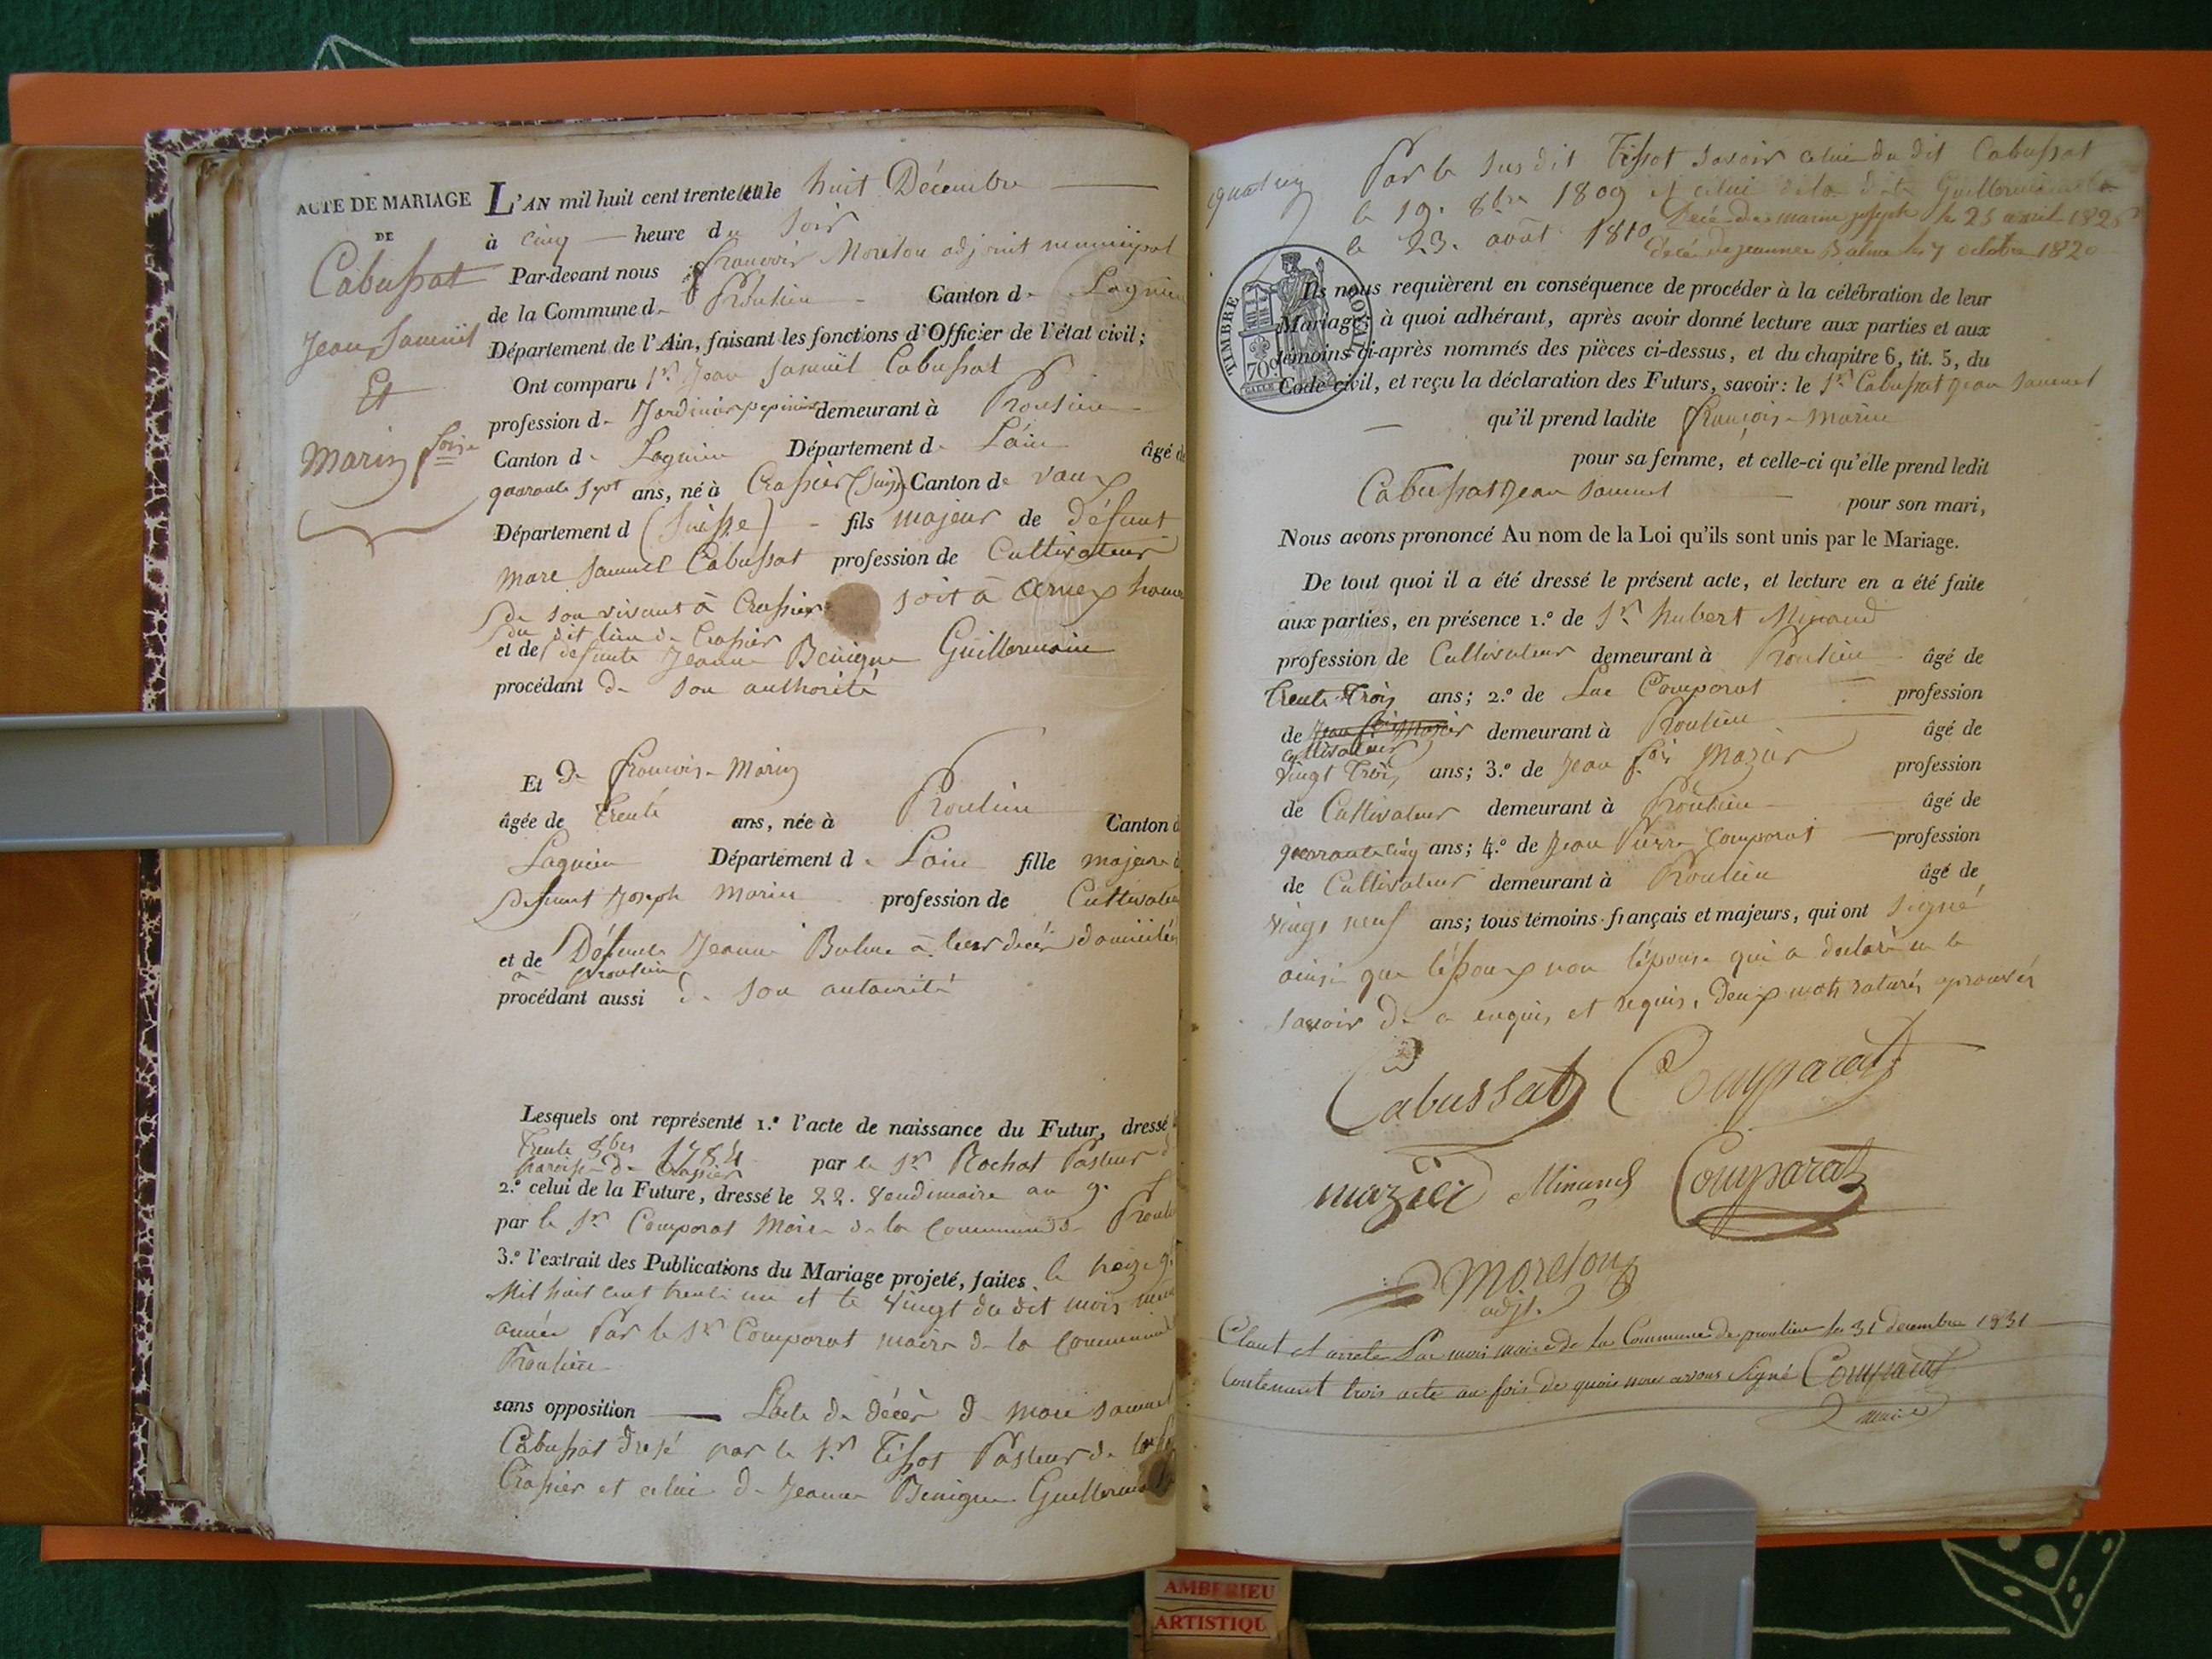 ACTE DE MARIAGE
DE
Cabussat
Jean Samuël
Et
Marin foise
L'AN mil huit cent trente un le huit Décembre
à cinq heure du soir
Par-devant nous françois Moreton adjoint municipal
de la Commune d. Proulieu Canton d. Lagnieu
Département de l'Ain, faisant les fonctions d'Officier de l'état civil;
Ont comparu Sr. Jean Samuël Cabussat
profession d. Jardinier pepinier demeurant à Proulieu
Canton d. Lagnieu Département d. L'ain âgé de
quarante sept ans, né à Crassier (Suisse) Canton de vaux
Département d (Suisse) fils majeur de défunt
Marc Samuel Cabussat profession de Cultivateur
de son vivant à Crassier soit à Arnex
du dit lieu de Crassier
et de defunte Jeanne Benigne Guillermain
procédant de son authorité
Et De françoise Marin
âgée de trente ans, née à Proulieu Canton d
Lagnieu Département d. L'ain fille majeure d
defunt Joseph Marin profession de Cultivateur
et de Défunte Jeanne Balme à leur décès domiciliés
à Proulieu
procédant aussi de son autaurité
Lesquels ont représenté 1.º l'acte de naissance du Futur, dressé
trente 8bre 1784 par le Sr. Rochat Pasteur d
paroisse de Crassier
2.º celui de la Future, dressé le 22. vendimaire an 9.
par le Sr. Comparat Maire de la Commune de Proulieu
3.º l'extrait des Publications du Mariage projeté, faites le treize 9.
Mil huit cent trente un et le vingt du dit mois même
année Par le Sr. Comparat maire de la Commune de
Proulieu
sans opposition L'acte de décès de Marc Samuel
Cabussat dressé par le Sr. Tissot Pasteur de
Crassier et celui de Jeanne Benigne Guillermain
Par le susdit Tissot savoir celui du dit Cabussat
le 19. 8bre 1809 et celui de la dite Guillermain
le 23. août 1810
Decé de marin joseph le 25 avril 1826
Decé de jeanne Balme le 7 octobre 1820
TIMBRE ROYAL
70c
Ils nous requièrent en conséquence de procéder à la célébration de leur
Mariage; à quoi adhérant, après avoir donné lecture aux parties et aux
témoins ci-après nommés des pièces ci-dessus, et du chapitre 6, tit. 5, du
Code civil, et reçu la déclaration des Futurs, savoir: le Sr. Cabussat Jean Samuel
qu'il prend ladite françoise Marin
pour sa femme, et celle-ci qu'elle prend ledit
Cabussat Jean Samuel pour son mari,
Nous avons prononcé Au nom de la Loi qu'ils sont unis par le Mariage.
De tout quoi il a été dressé le présent acte, et lecture en a été faite
aux parties, en présence 1.º de Sr. hubert Minand
profession de Cultivateur demeurant à Proulieu âgé de
trente trois ans; 2.º de Luc Comparat profession
de demeurant à Proulieu âgé de
cultivateur
vingt trois ans; 3.º de Jean fois Mazier profession
de Cultivateur demeurant à Proulieu âgé de
quarante cinq ans; 4.º de Jean Pierre Comparat profession
de Cultivateur demeurant à Proulieu âgé de
vingt neuf ans; tous témoins français et majeurs, qui ont signé
ainsi que l'époux non l'épouse qui a declaré ne le
savoir de ce enquis et requis, Deux mots raturés aprouvés
Cabussat Comparat
mazier Minand Comparat
Moreton
adjt.
Clout et arrete Par moi maire de la Commune de proulieu le 31 decembre 1831
Contenant trois acte au fois de quoi nous avons signé Comparat
maire
AMBERIEU
ARTISTIQU